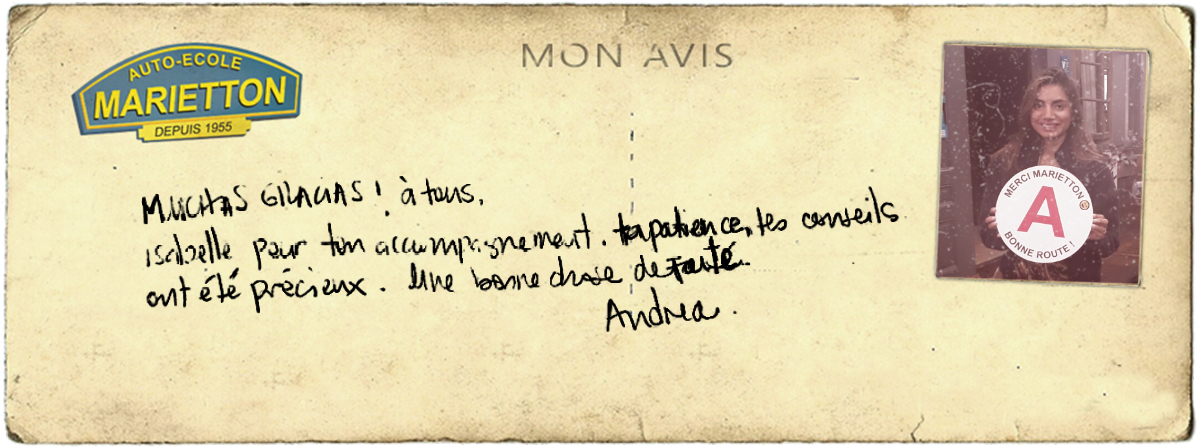 AUTO-ECOLE
MARIETTON
DEPUIS 1955
MON AVIS
MUCHAS GRACIAS ! à tous,
isabelle pour ton accompagnement. ta patience, tes conseils
ont été précieux. Une bonne chose de faite.
Andrea.
MERCI MARIETTON
A
BONNE ROUTE !